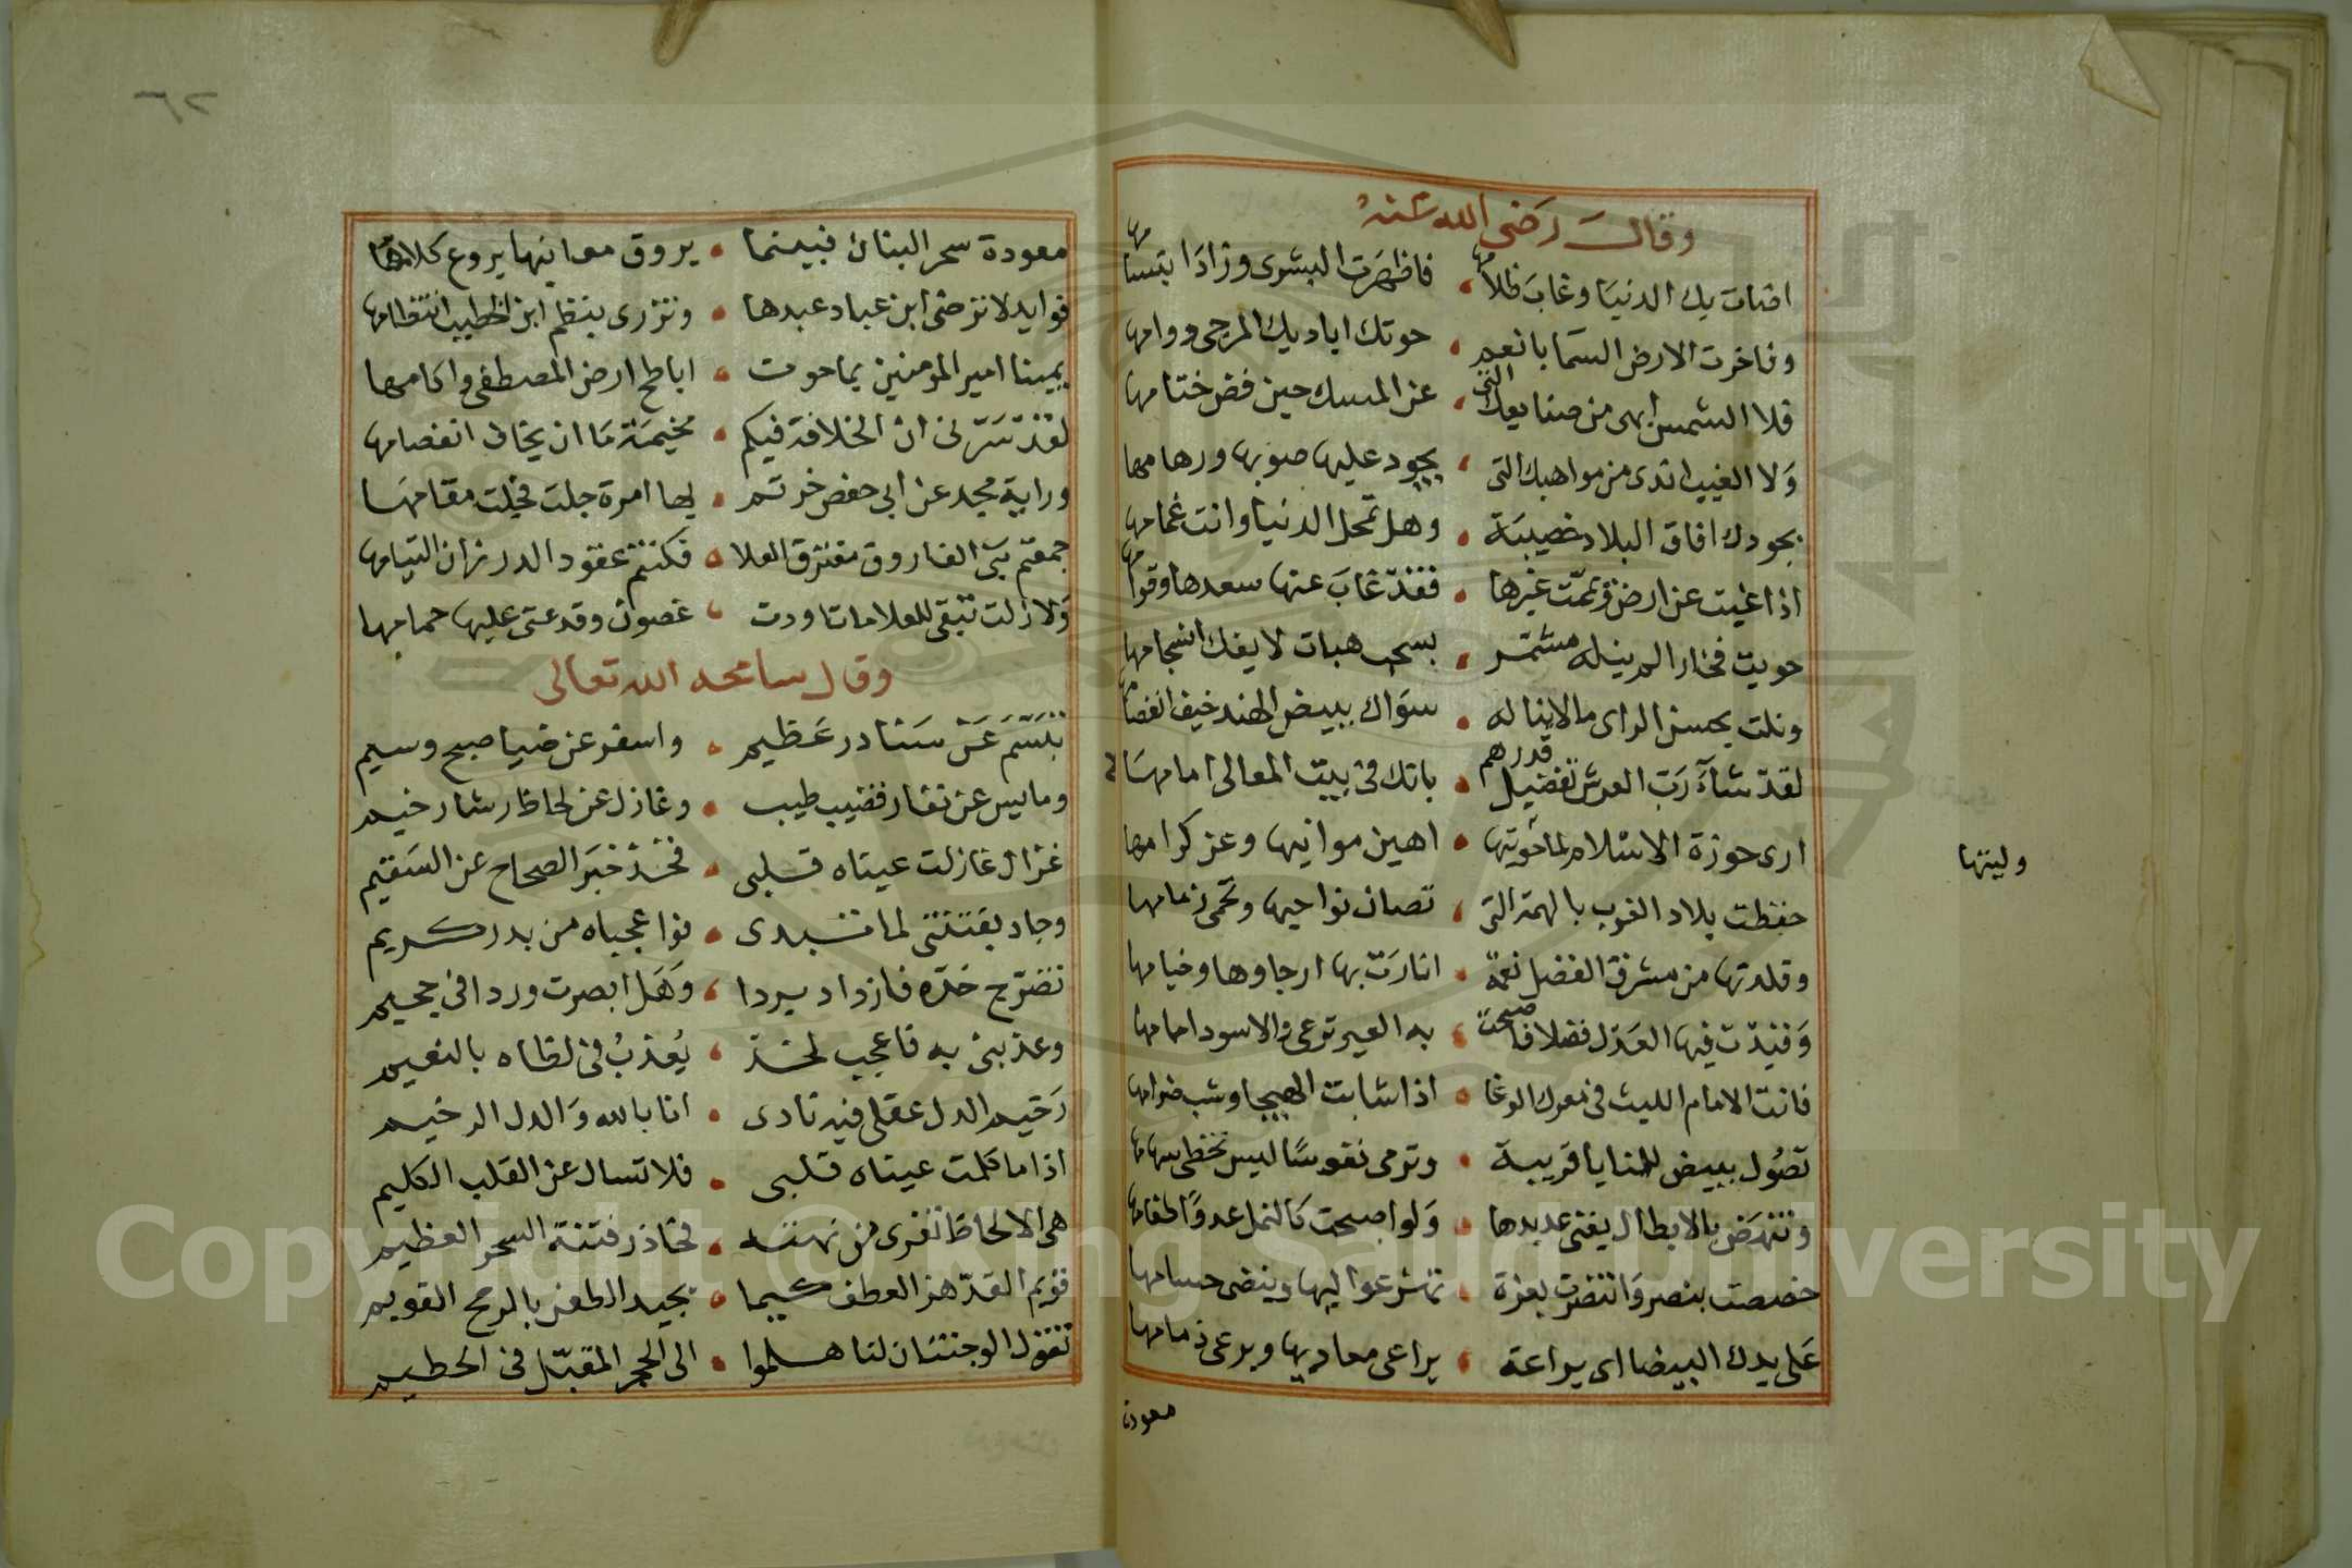 وقال رضى الله عنه
اضات بك الدنيا وغاب ظلامها • فاظهرت البشرى وزاد ابتسامها
وفاخرت الارض السما بانعم • حوتك اياديك المرجى دوامها
فلا الشمس ابهى من صنايعك التى • عن المسك حين فض ختامها
ولا الغيث اندى من مواهبك التى • يجود عليها صوبها ورهامها
بجودك افاق البلاد خصيبة • وهل تمحل الدنيا وانت غمامها
اذا غبت عن ارض ويممت غيرها • فقد غاب عنها سعدها وقوامها
حويت فخارا لم ينله مشمر • بسحب هبات لا يفك انسجامها
ونلت بحسن الراى مالا يناله • سواك ببيض الهند خيف انفصامها
لقد شاء رب العرش تفضيل قدرهم • بانك فى بيت المعالى امامها
ارى حوزة الاسلام لما حويتها • اهين موانيها وعز كرامها
وليتها
حفظت بلاد الغرب بالهمة التى • تصان نواحيها وتحمى ذمامها
وقلدتها من مشرق الفضل نعمة • انارت بها ارجاوها وخيامها
وقيدت فيها العدل فضلا فاصبحت • به العير ترعى والاسود امامها
فانت الامام الليث فى معرك الوغا • اذا شابت الهيجا وشب ضرامها
تصول ببيض للمنايا قريبة • وترمى نفوسا ليس تخطى سهامها
وتنهض بالابطال يفنى عديدها • ولو اصبحت كالنمل عدوا طغامها
خصصت بنصر وانتضرت بعزة • تشرع عواليها وينضى حسامها
على يدك البيضا اى يراعة • يراعى معاديها ويرعى ذمامها
معودة
٦٢
معودة سحر البنان فبينما • يروق معانيها يروع كلامها
فوايد لا ترضى ابن عباد عبدها • وتزرى بنظم ابن الخطيب انتظامها
يمينا امير المومنين بما حوت • اباطح ارض المصطفى واكامها
لقد سرنى ان الخلافة فيكم • مخيمة ما ان يخاف انفصامها
وراية مجد عن ابى حفص خرتم • لها امرة جلت فجلت مقامها
جمعتم بنى الفاروق مفترق العلا • فكنتم عقود الدر زان التيامها
ولا زلت تبقى للعلا ما تاودت • غصون وقد عنى عليها حمامها
وقال سامحه الله تعالى
تبسم عن سنا در عظيم • واسفر عن ضيا صبح وسيم
ومايس عن نقار قضيب طيب • وغازل عن لحاظ رشا رخيم
غزال غازلت عيناه قلبى • فخذ خبر الصحاح عن السقيم
وجاد بفتنتى لما تبدى • فوا عجباه من بدر كريم
تضرج خده فازداد بردا • وهل ابصرت وردا فى جحيم
وعذبنى به فاعجب لخد • يعذب فى لظاه بالنعيم
رخيم الدل عقلى فيه نادى • انا بالله والدل الرخيم
اذا ما كلمت عيناه قلبى • فلا تسال عن القلب الكليم
هى الالحاظ تغرى من نهته • فحاذر فتنة السحر العظيم
قويم القد هز العطف كيما • يجيد الطعن بالرمح القويم
تقول الوجنتان لنا هلموا • الى الحجر المقبل فى الحطيم
Copyright © King Saud University